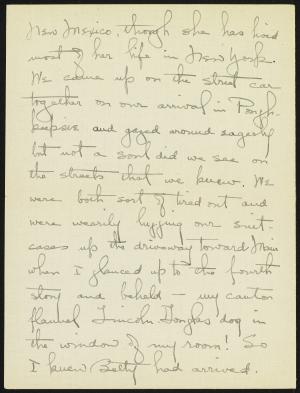 New Mexico, though she has lived
most of her life in New York.
We came up on the street car
together on our arrival in Pough-
keepsie and gazed around eagerly
but not a soul did we see on
the streets that we knew. We
were both sort of tired out and
were wearily lugging our suit-
cases up the driveway toward Main
when I glanced up to the fourth
story and beheld – my canton
flannel Lincoln Douglas dog in
the window of my room! So
I knew Betty had arrived.